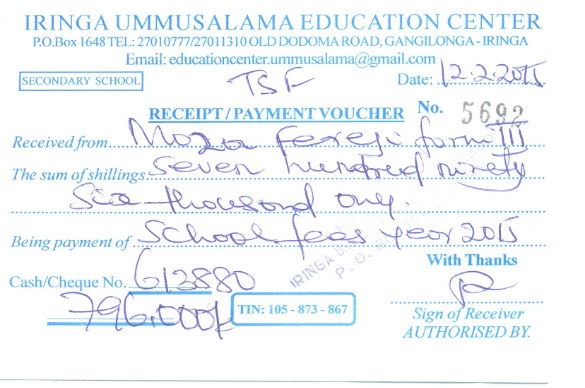 IRINGA UMMUSALAMA EDUCATION CENTER
P.O.Box 1648 TEL: 27010777/27011310 OLD DODOMA ROAD, GANGILONGA - IRINGA
Email: educationcenter.ummusalama@gmail.com
SECONDARY SCHOOL TSF Date: 12.2.2015
RECEIPT / PAYMENT VOUCHER No. 5692
Received from Moza Fereji form III
The sum of shillings Seven hundred ninety
Six thousand only.
Being payment of School fees year 2015
IRINGA
P. O.
With Thanks
Cash/Cheque No. 613880
796,000/= TIN: 105 - 873 - 867
Sign of Receiver
AUTHORISED BY.